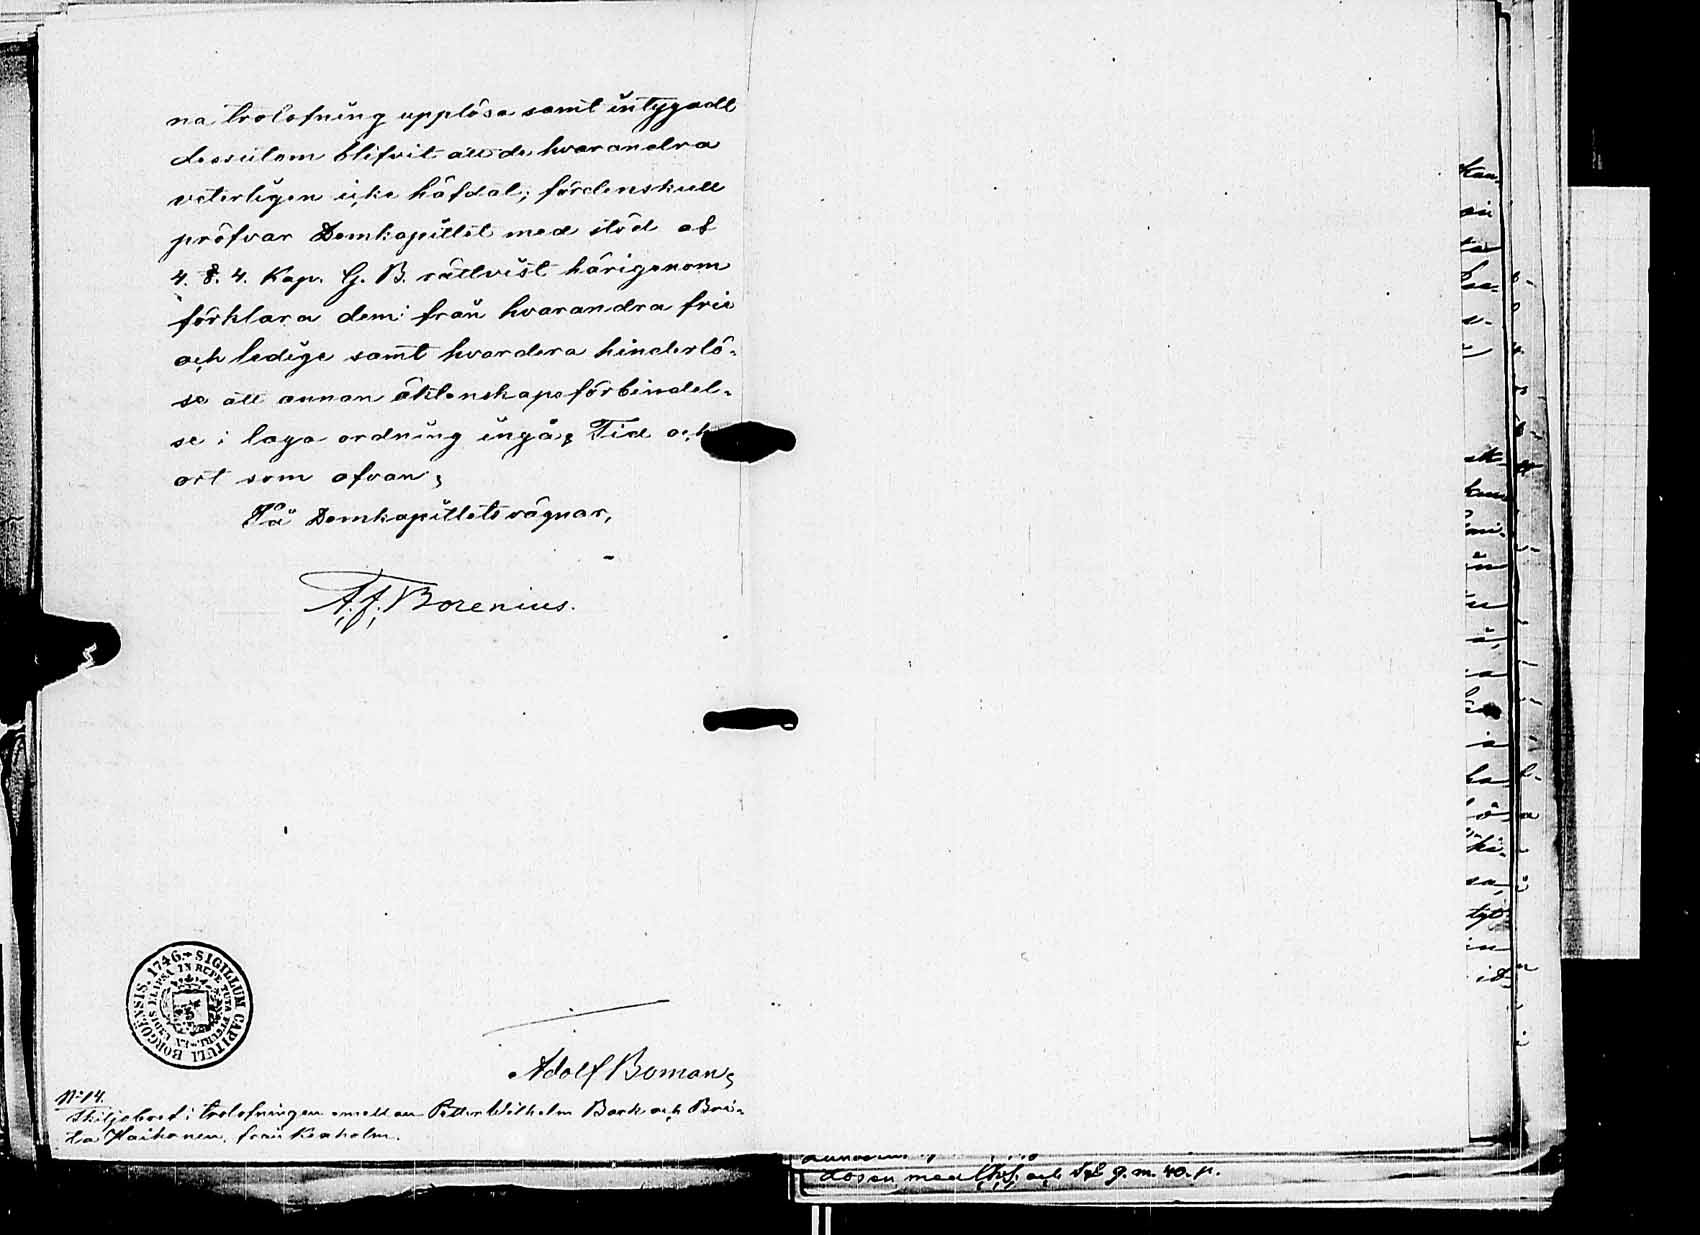 na trolofning upplösa samt intygadt
dessutom blifvit att de hvarandra
veterligen icke häfdat; fördenskull
pröfvar Domkapitlet med stöd af
4. §. 4. Kap. G. B. rättvist härigenom
förklara dem från hvarandra frie
och ledige samt hvardera hinderlö-
se att annan äktenskapsförbindel-
se i laga ordning ingå. Tid och
ort som ofvan;
På Domkapitlets vägnar,
A. f. Borenius.
SIGILLUM CAPITULI BORGOENSIS. 1746.
Adolf Boman,
No 14.
Skiljobref i trolofningen emellan Petter Wilhelm Bark och Bri-
ta Haikonen, från Kexholm.
dosen med och 9. m. 40. p.